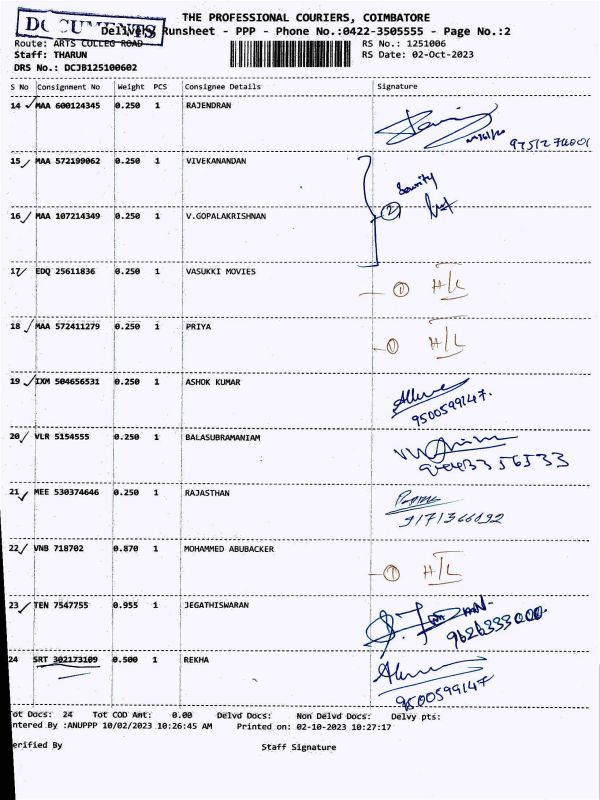 THE PROFESSIONAL COURIERS, COIMBATORE
DOCUMENTS
Delivery Runsheet - PPP - Phone No.:0422-3505555 - Page No.:2
Route: ARTS COLLEG ROAD
RS No.: 1251006
Staff: THARUN
RS Date: 02-Oct-2023
DRS No.: DCJB125100602
S No Consignment No Weight PCS Consignee Details Signature
14 MAA 600124345 0.250 1 RAJENDRAN
15 MAA 572199062 0.250 1 VIVEKANANDAN
Security
16 MAA 107214349 0.250 1 V.GOPALAKRISHNAN
2
17 EDQ 25611836 0.250 1 VASUKKI MOVIES
1 H/L
18 MAA 572411279 0.250 1 PRIYA
1 H/L
19 IXM 504656531 0.250 1 ASHOK KUMAR
9500599147.
20 VLR 5154555 0.250 1 BALASUBRAMANIAM
21 MEE 530374646 0.250 1 RAJASTHAN
22 VNB 718702 0.870 1 MOHAMMED ABUBACKER
1 H/L
23 TEN 7547755 0.955 1 JEGATHISWARAN
9626333000.
24 SRT 302173109 0.500 1 REKHA
9500599147
Tot Docs: 24 Tot COD Amt: 0.00 Delvd Docs: Non Delvd Docs: Delvy pts:
ntered By :ANUPPP 10/02/2023 10:26:45 AM Printed on: 02-10-2023 10:27:17
erified By Staff Signature